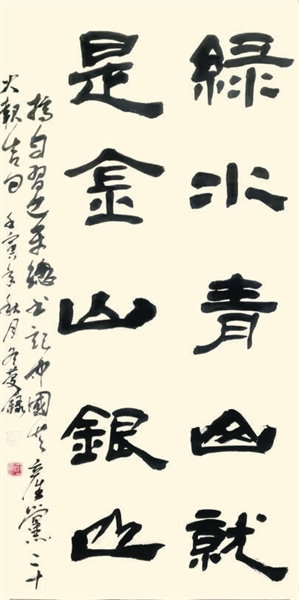 綠水青山就
是金山銀山
摘自習近平總书記中國共產黨二十
大報告句 壬寅年秋月